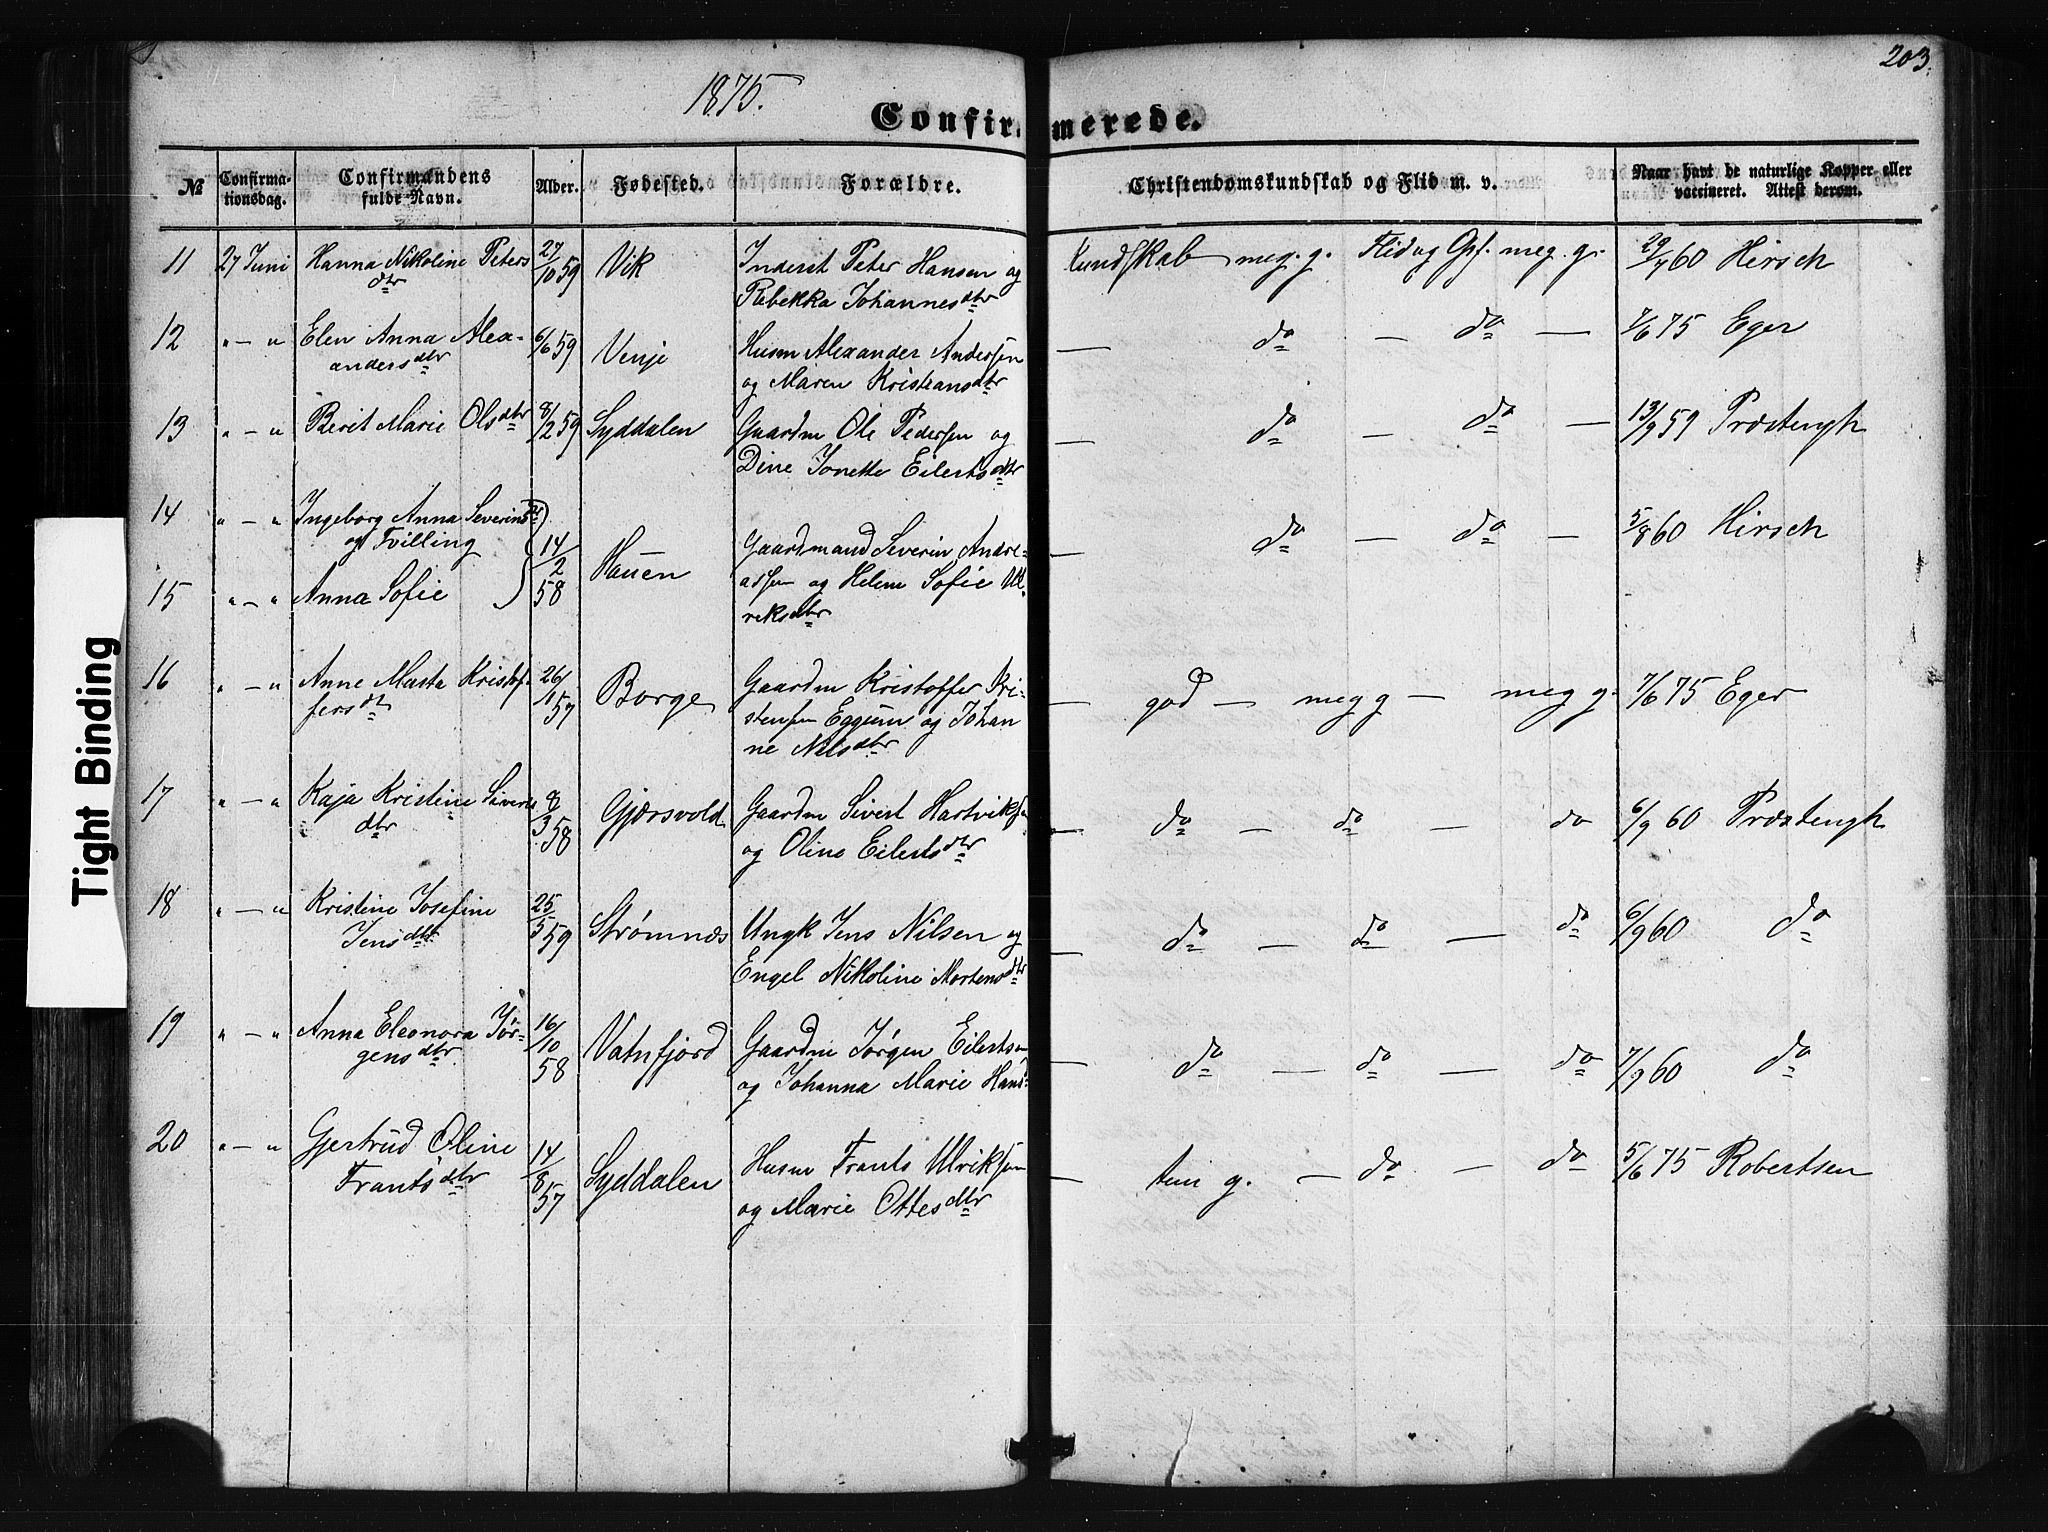 203
1875.
Confirmerede.
№ Confirmationsdag. Confirmandens fulde Navn. Alder. Fødested. Forældre. Christendomskundskab og Flid m. v. Naar havt de naturlige Kopper eller vaccineret. Attest derom.
11 27 Juni Hanna Nikoline Peters 27/10 59 Vik Inderst Peter Hansen og Kundskab meg. g. Flid og Opf. meg. g. 29/7 60 Hirsch
dtr Rebekka Johannesdtr
12 " — " Elen Anna Alex- 6/6 59 Venje Husm Alexander Andersen — do — do — 7/6 75 Eger
andersdtr og Maren Kristiansdtr
13 " — " Berit Marie Olsdtr 8/2 59 Syddalen Gaardm Ole Pedersen og — do — do — 13/9 59 Præstengh
Dine Jonette Eilertsdtr
14 " — " Ingeborg Anna Severinsdtr
og Tvilling 14/2 58 Hauen Gaardmand Severin Andre- — do — do — 5/8 60 Hirsch
15 " — " Anna Sofie assen og Helene Sofie Ul-
riksdtr
16 " — " Anne Marta Kristof- 26/1 57 Borge Gaardm Kristoffer Kri- — god — meg g — meg g. 7/6 75 Eger
fersdtr stensen Eggum og Johan
ne Nilsdtr
17 " — " Kaja Kristine Siverts 8/3 58 Gjærsvold Gaardm Sivert Hartviksen — do — do — do 6/9 60 Præstengh
dtr og Oline Eilertsdtr
18 " — " Kristine Josefine 25/5 59 Strømnæs Ungk Jens Nilsen og — do — do — do 6/9 60 do
Jensdtr Engel Nikoline Mortensdtr
19 " — " Anna Eleonora Jør- 16/10 58 Vatnfjord Gaardm Jørgen Eilertsen — do — do — do 7/9 60 do
gensdtr og Johanna Marie Hans-
20 " — " Gjertrud Oline 14/8 57 Syddalen Husm Frants Ulriksen — tem g. — do — do 5/6 75 Robertsen
Frantsdtr og Marie Ottesdtr
Tight Binding